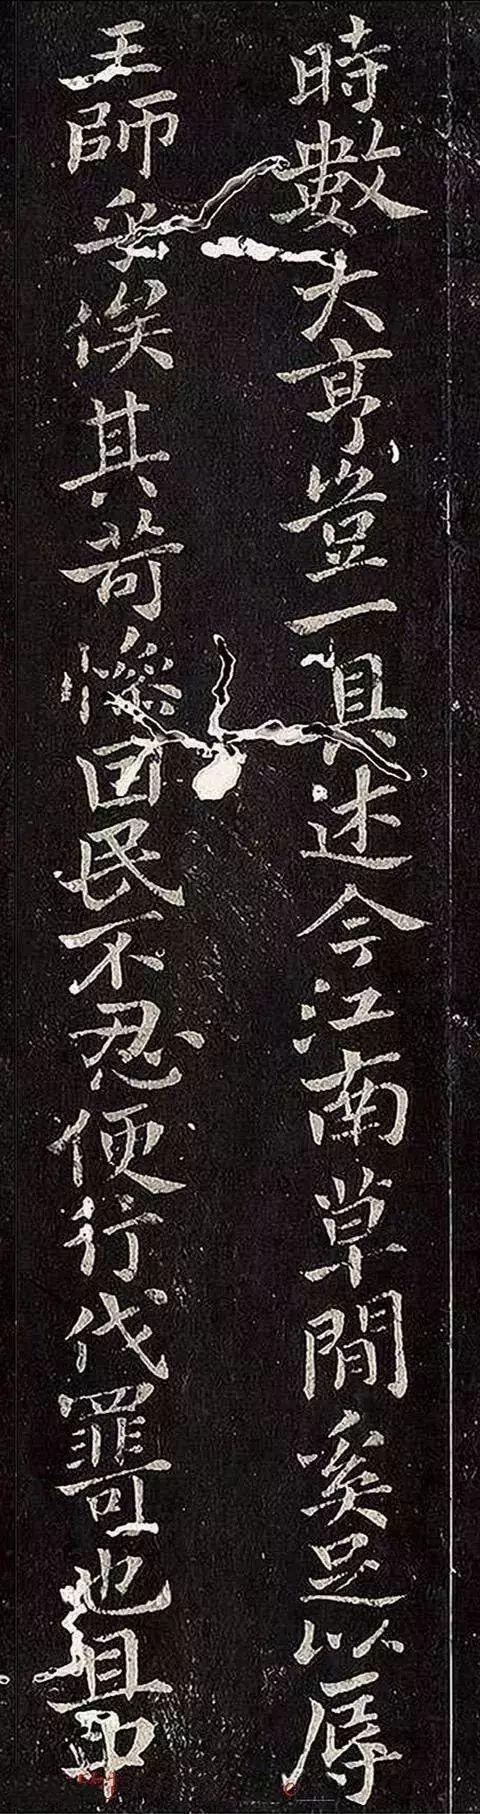 時數大亨豈一具述今江南草間奚足以辱
王師乎俟其苛慘困民不忍便行伐罪可也且中